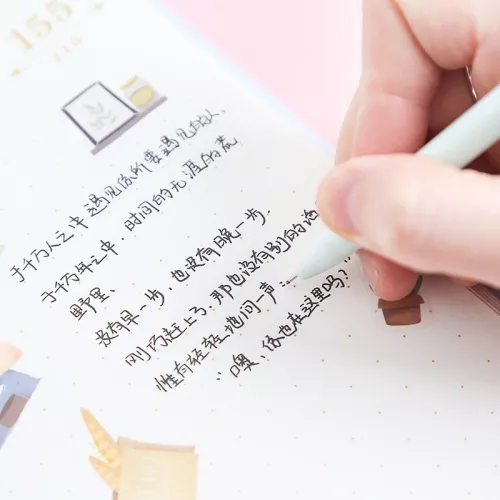 155
110
于千万人之中遇见你所要遇见的人、
于千万年之中，时间的无涯的荒
野里、
没有早一步，也没有晚一步.
刚巧赶上了，那也没有别的话
惟有轻轻地问一声:
“噢，你也在这里吗?